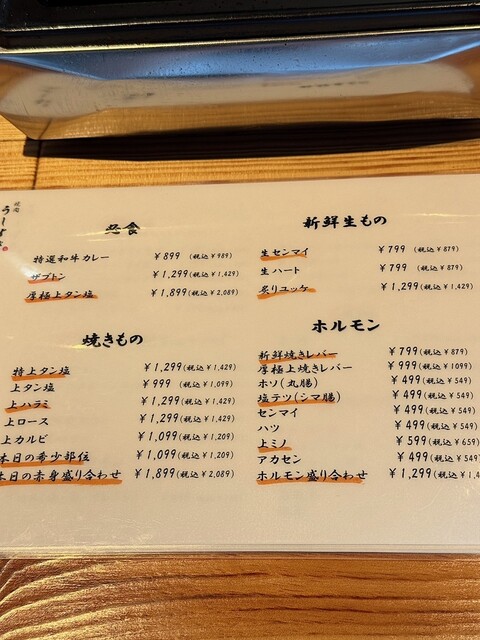 食
特選和牛カレー ￥899 (税込￥989)
ザブトン ￥1,299 (税込￥1,429)
厚極上タン塩 ￥1,899 (税込￥2,089)
新鮮生もの
生センマイ ￥799 (税込￥879)
生ハート ￥799 (税込￥879)
炙りユッケ ￥1,299 (税込￥1,429)
焼きもの
特上タン塩 ￥1,299 (税込￥1,429)
上タン塩 ￥999 (税込￥1,099)
上ハラミ ￥1,299 (税込￥1,429)
上ロース ￥1,299 (税込￥1,429)
上カルビ ￥1,099 (税込￥1,209)
本日の希少部位 ￥1,099 (税込￥1,209)
本日の赤身盛り合わせ ￥1,899 (税込￥2,089)
ホルモン
新鮮焼きレバー ￥799 (税込￥879)
厚極上焼きレバー ￥999 (税込￥1099)
ホソ(丸腸) ￥499 (税込￥549)
塩テツ(シマ腸) ￥499 (税込￥549)
センマイ ￥499 (税込￥549)
ハツ ￥499 (税込￥549)
上ミノ ￥599 (税込￥659)
アカセン ￥499 (税込￥549)
ホルモン盛り合わせ ￥1,299 (税込￥1,4